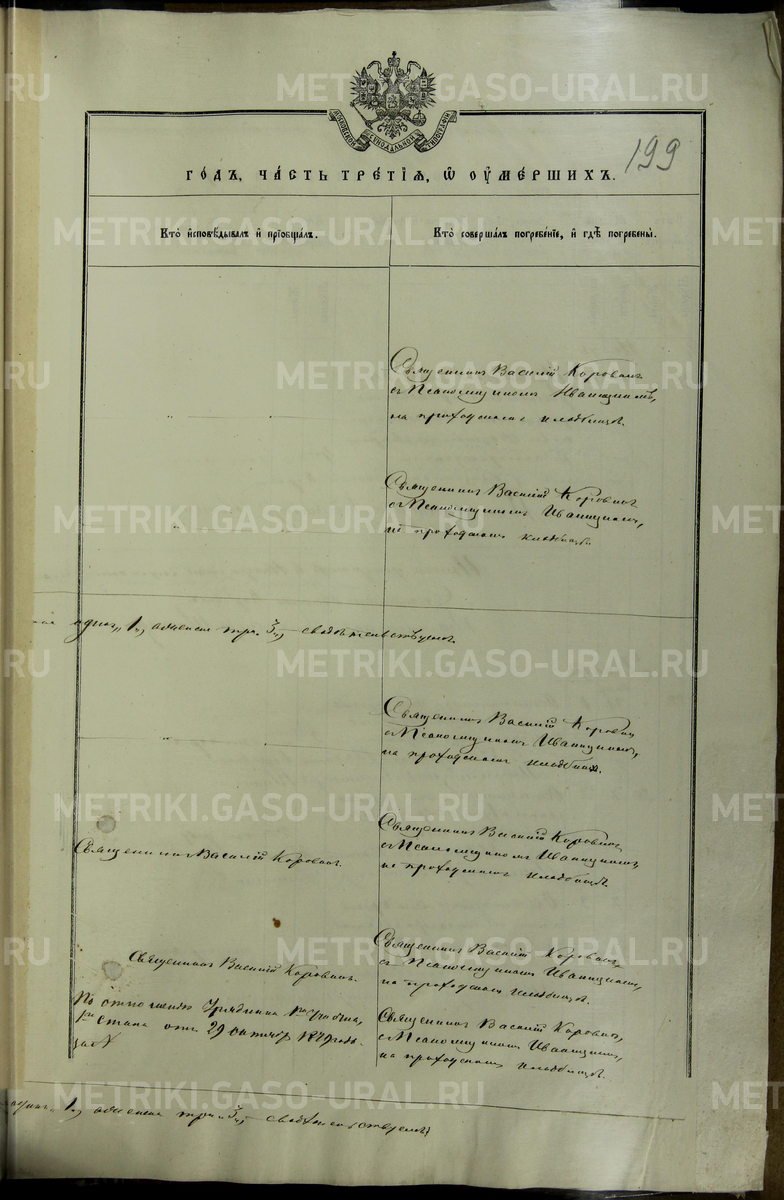 METRIKI.GASO-URAL.RU
МОСКОВСКОЙ СѴНОДАЛЬНОЙ ТИПОГРАФІИ
199
ГО́ДЪ, ЧА́СТЬ ТРЕ́ТІѦ, Ѡ ОУ҆МЕ́РШИХЪ.
Кто̀ и҆сповѣ́дывалъ и҆ прїобща́лъ.
Кто̀ соверша́лъ погребе́нїе, и҆ гдѣ̀ погребены̀.
Священникъ Василій Коровинъ
съ Псаломщикомъ Иваницкимъ,
на приходскомъ кладбищѣ.
Священникъ Василій Коровинъ
съ Псаломщикомъ Иваницкимъ,
на приходскомъ кладбищѣ.
одинъ „1„, женска три „3„, свидѣтельствуемъ.
Священникъ Василій Коровинъ
съ Псаломщикомъ Иваницкимъ,
на приходскомъ кладбищѣ.
Священникъ Василій Коровинъ.
Священникъ Василій Коровинъ
съ Псаломщикомъ Иваницкимъ,
на приходскомъ кладбищѣ.
Священникъ Василій Коровинъ.
Священникъ Василій Коровинъ,
съ Псаломщикомъ Иваницкимъ,
на приходскомъ кладбищѣ.
По отношенію Урядника
Стана отъ 29 октября 1879 года
за №
Священникъ Василій Коровинъ,
съ Псаломщикомъ Иваницкимъ,
на приходскомъ кладбищѣ.
одинъ „1„, женска три „3„, свидѣтельствуемъ